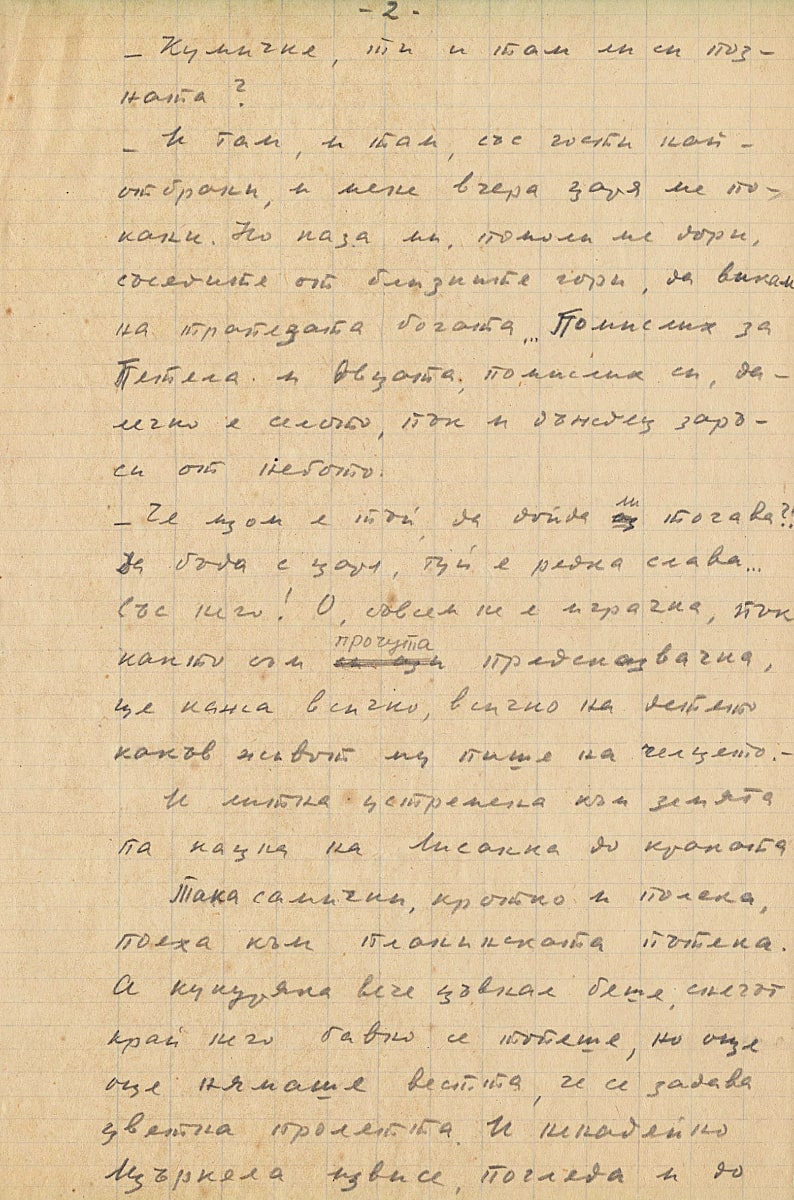 - 2 -
– Кумичке, ти и там ли си поз-
ната?
– И там, и там, със гости най-
отбрани, и мене вчера царя ме по-
кани. Но каза ми, помоли ме дори,
съседите от близките гори, да викам
на трапезата богата... Помислих за
Петела и Овцата, помислих си, да-
лечко е селото, пък и дъждец заръ-
си от небето.
– Че щом е тъй, да дойда ли тогава?!
Да бъда с царя, туй е рядка слава...
Със него! О, съвсем не е играчка, пък
както съм прочута предсказвачка,
ще кажа всичко, всичко на детето
какъв живот му пише на челцето. –
И литна устремена към земята
па кацна на Лисанка до краката
Така самички, кротко и полека,
поеха към планинската пътека.
А кукуряка вече цъвнал беше, снегът
край него бавно се топеше, но още
още нямаше вестта, че се задава
цветна пролетта. И ненадейно
Мъркела извисе, погледа и до